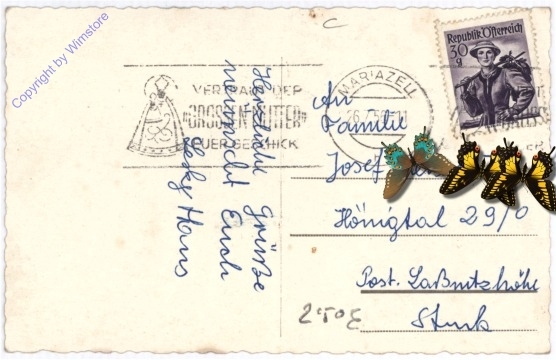 Copyright by Wimstore
C
VERTRAUT DER
GROSSEN MUTTER
EUER GESCHICK
MARIAZELL
Republik Österreich
30
g
Herzliche Grüße
wünscht Euch
Hans
An
Familie
Josef
Hönigtal 29/0
Post. Laßnitzhöhe
Stmk